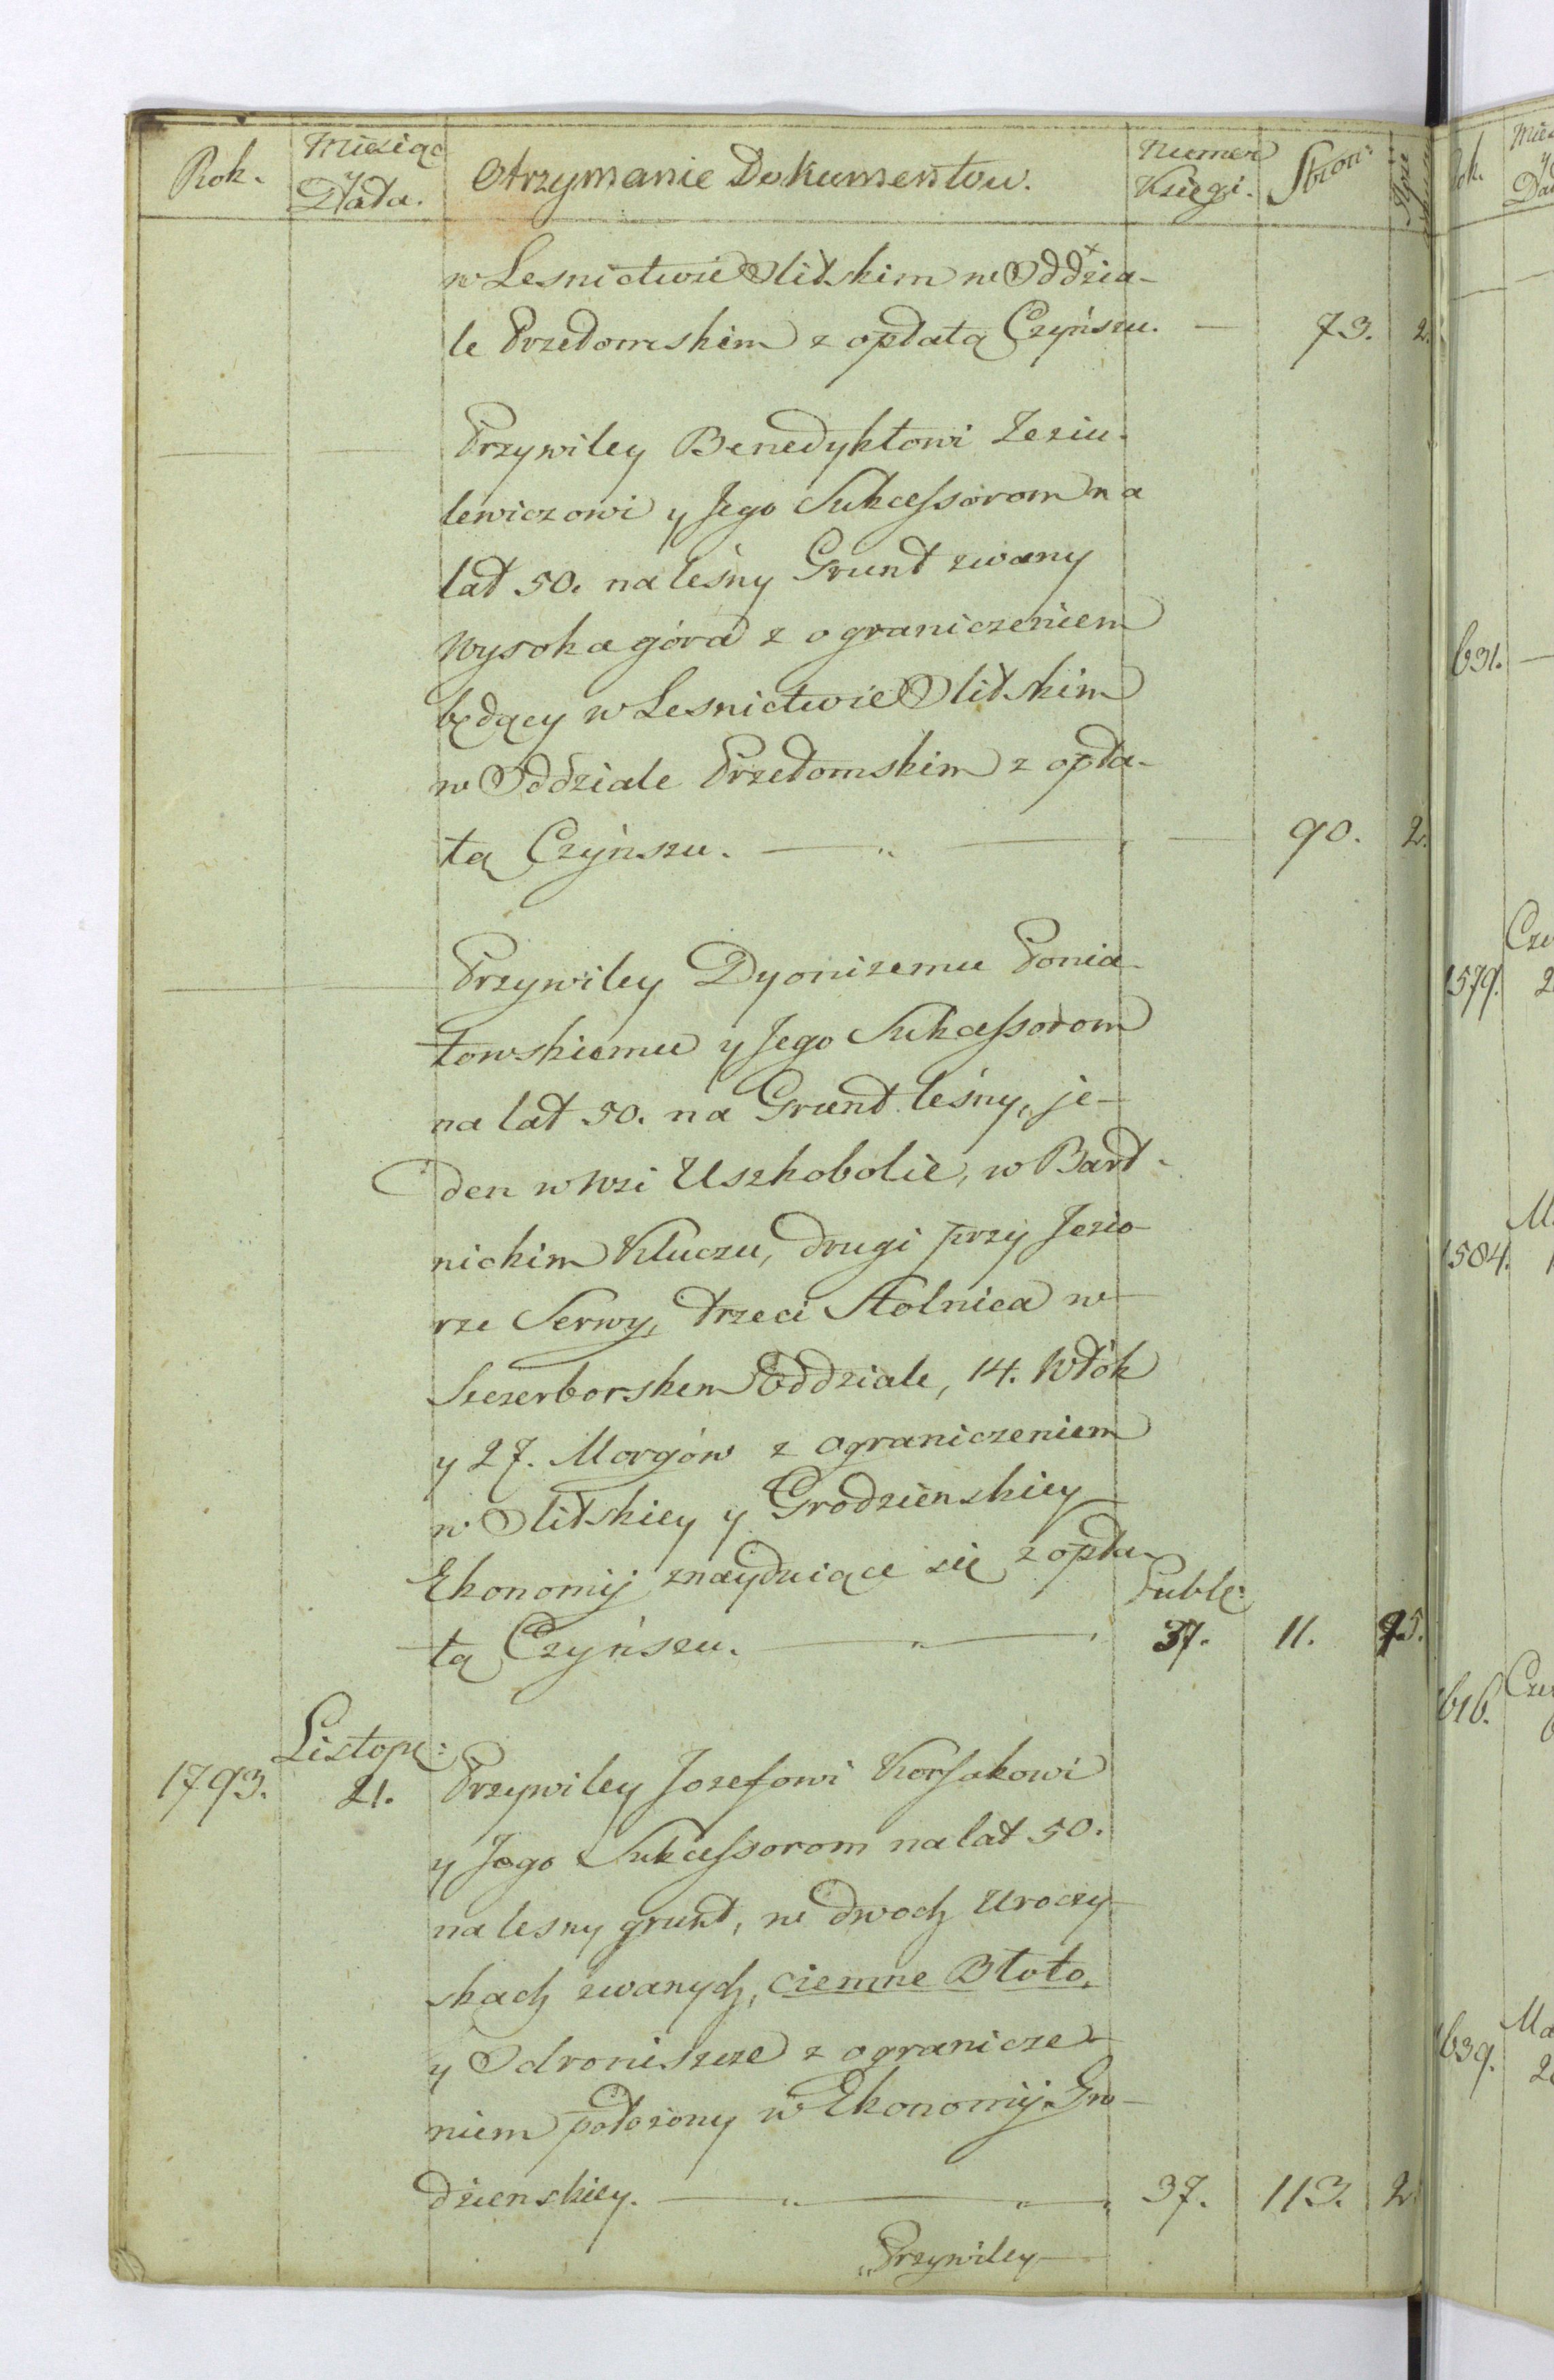 Rok. Miesiąc y Data. Otrzymanie Dokumentow. Numer Księgi. Stron:
w Lesnictwie Olitskim w Oddzia-
le Przełomskim z opłatą Czyńszu. — 73. 2.
— — Przywiley Benedyktowi Zeziu-
lewiczowi y Jego Sukcessorom na
lat 50. na leśny Grunt zwany
Wysoka góra z ograniczeniem
będący w Lesnictwie Olitskim
w Oddziale Przełomskim z opła-
tą Czyńszu. — „ — — 90. 2.
— — Przywiley Dyonizemu Ponia-
towskiemu y Jego Sukcessorom
na lat 50. na Grunt leśny, je-
den w wsi Uszkobolie, w Bart-
nickim Kluczu, drugi przy Jezio-
rze Serwy, trzeci Stolnica w
Szczerborskem Oddziale, 14. Włók
y 27. Morgów z ograniczeniem
w Olitskiey y Grodzienskiey
Ekonomij znayduiące się z opła-
tą Czyńszu. — „ — Publ: 37. 11. 95.
1793. Listop: 21. Przywiley Jozefowi Korsakowi
y Jego Sukcessorom na lat 50.
na lesny grunt, w dwoch Uroczy-
skach zwanych, ciemne Błoto,
y Odroniszcze z ogranicze-
niem położony w Ekonomij Gro-
dzienskiey. — „ — „ — 37. 113. 2.
„Przywiley —
631. —
1579.
1584.
1616.
1639.